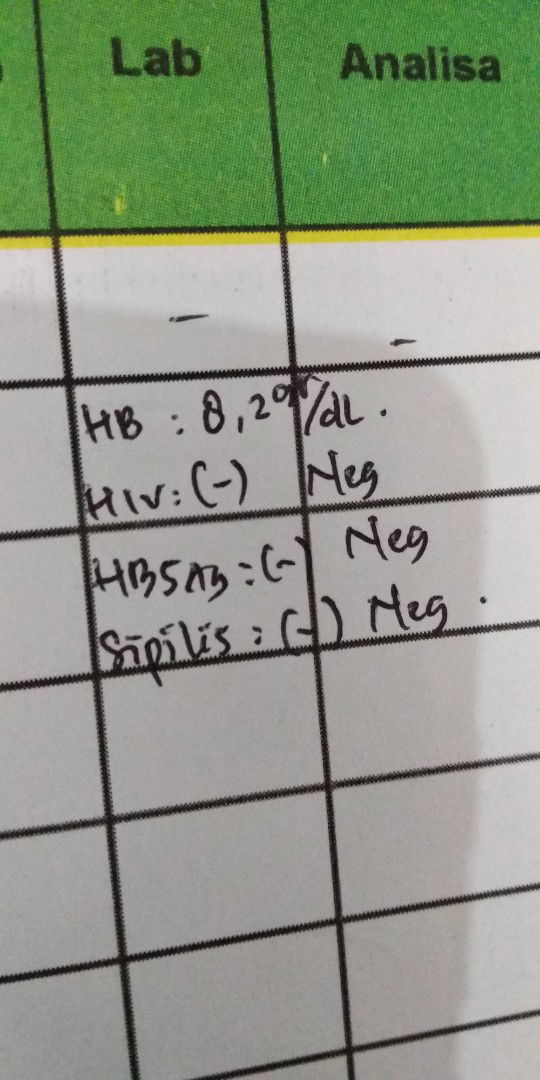 Lab Analisa
- -
HB : 8,2 gr/dL .
HIV : (-) Neg
HBSAg : (-) Neg
Sipilis : (-) Neg .